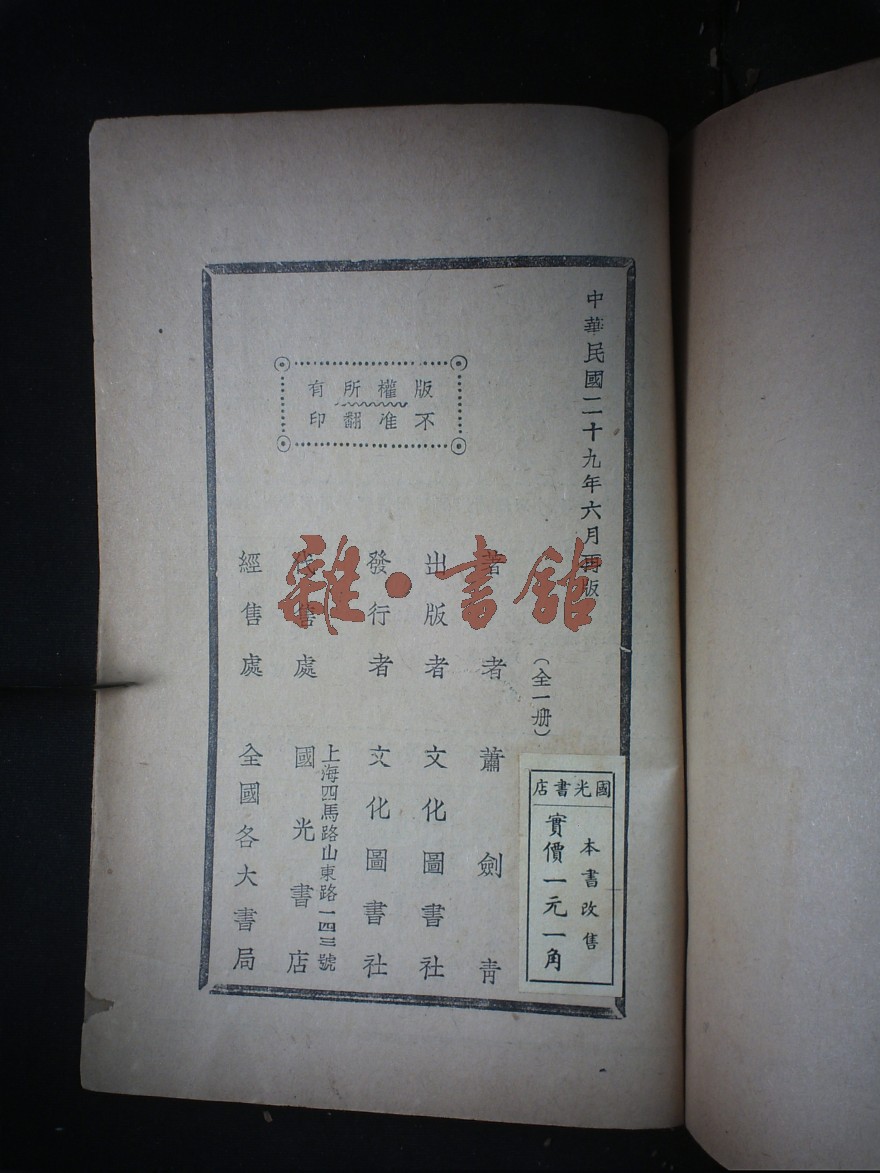 中華民國二十九年六月再版
(全一册)
國光書店
本書改售
實價一元一角
著者 蕭劍青
出版者 文化圖書社
發行者 文化圖書社
上海四馬路山東路一四三號
代售處 國光書店
經售處 全國各大書局
版權所有
不准翻印
雜·書館